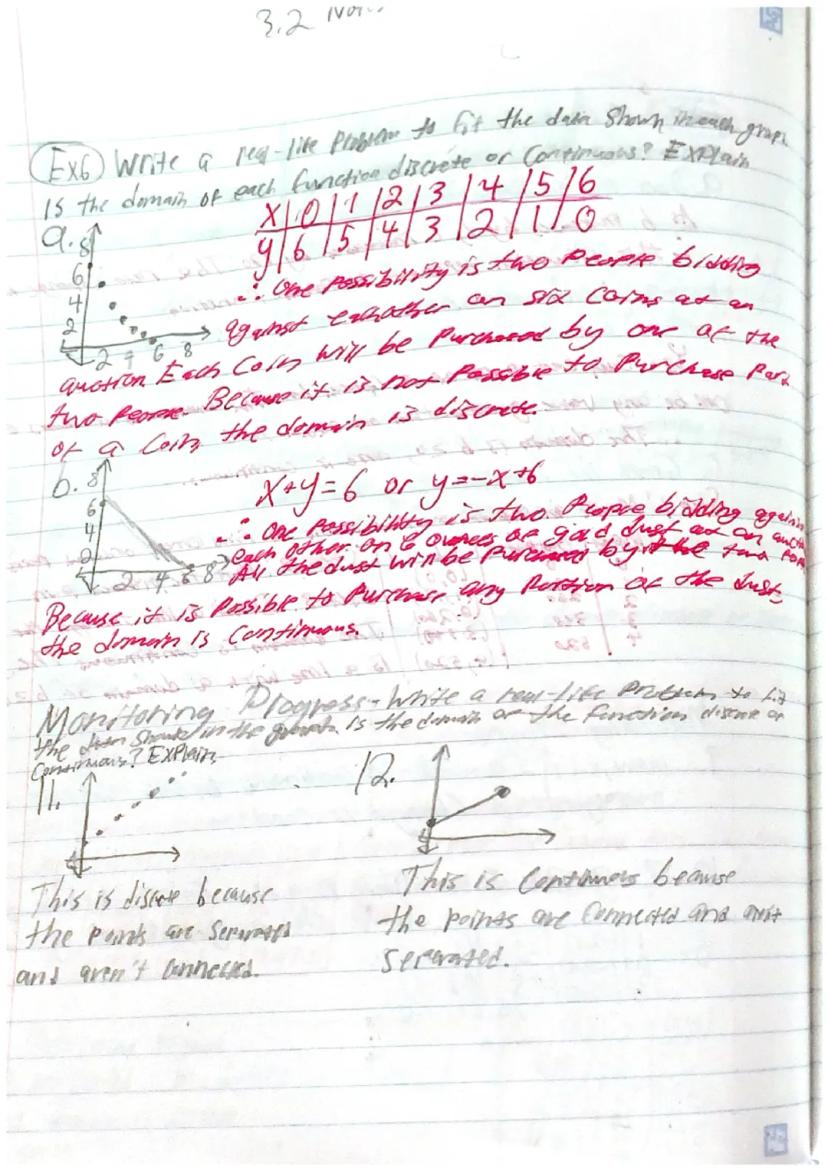 3.2 Notes
Ex6) Write a real-life Problem to fit the data Shown in each graph.
Is the domain of each function discrete or Continuous? EXPlain
a.
x|0|1|2|3|4|5|6
y|6|5|4|3|2|1|0
8
6
4
2
2 4 6 8
∴ One Possibility is two People bidding
against eachother on six Coins at an
auction Each Coin will be Purchased by one of the
two People. Because it is not Possible to Purchase Part
of a Coin, the domain is discrete.
b.
8
6
4
2
2 4 6 8
x+y=6 or y=-x+6
∴ One Possibility is two People bidding against
each other on 6 ounces of gold dust at an auction
All the dust will be Purchased by the two
Because it is Possible to Purchase any Portion of the dust,
the domain is Continuous.
Monitoring Progress - Write a real-life Problem to fit
the data Shown in the graph. is the domain of the function discrete or
Continuous? EXPlain.
11.
12.
This is discrete because
the Points are Seperated
and aren't Connected.
This is Continuous because
the points are Connected and not
Seperated.